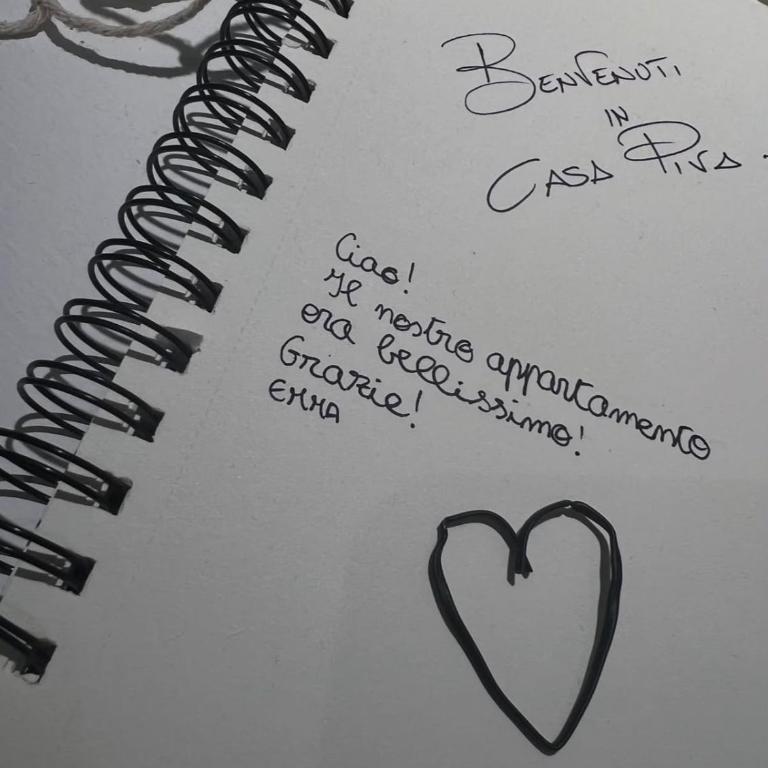 BENVENUTI
IN
CASA PIVA
Ciao!
Il nostro appartamento
era bellissimo!
Grazie!
EMMA